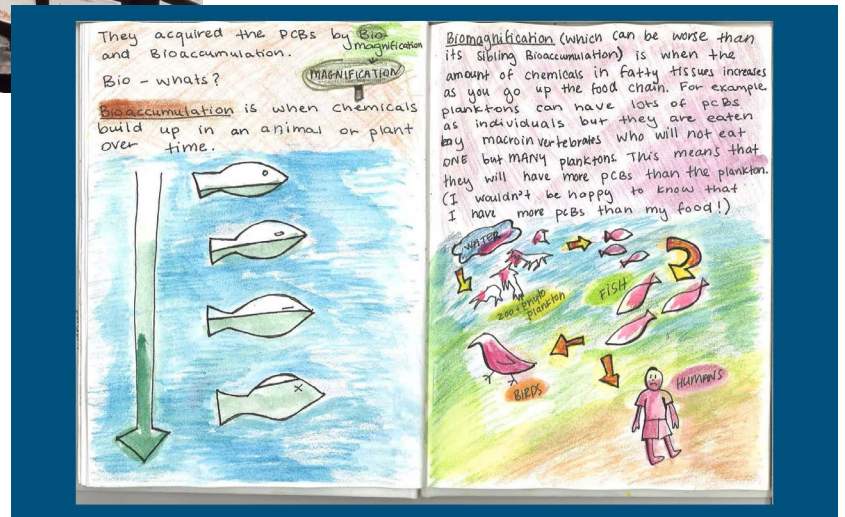 They acquired the PCBs by Bio-
magnification
and Bioaccumulation.
MAGNIFICATION
Bio - whats?
Bioaccumulation is when chemicals
build up in an animal or plant
over time.
Biomagnification (which can be worse than
its sibling Bioaccumulation) is when the
amount of chemicals in fatty tissues increases
as you go up the food chain. For example,
planktons can have lots of PCBs
as individuals but they are eaten
by macroinvertebrates who will not eat
ONE but MANY planktons. This means that
they will have more PCBs than the plankton.
(I wouldn't be happy to know that
I have more PCBs than my food!)
WATER
zoo+phyto
plankton
FISH
BIRDS
HUMANS